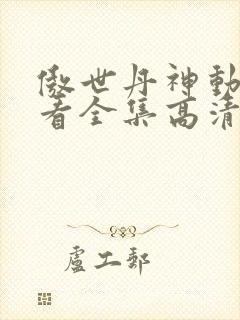 傲世丹神動
看全集高清
盧工郵